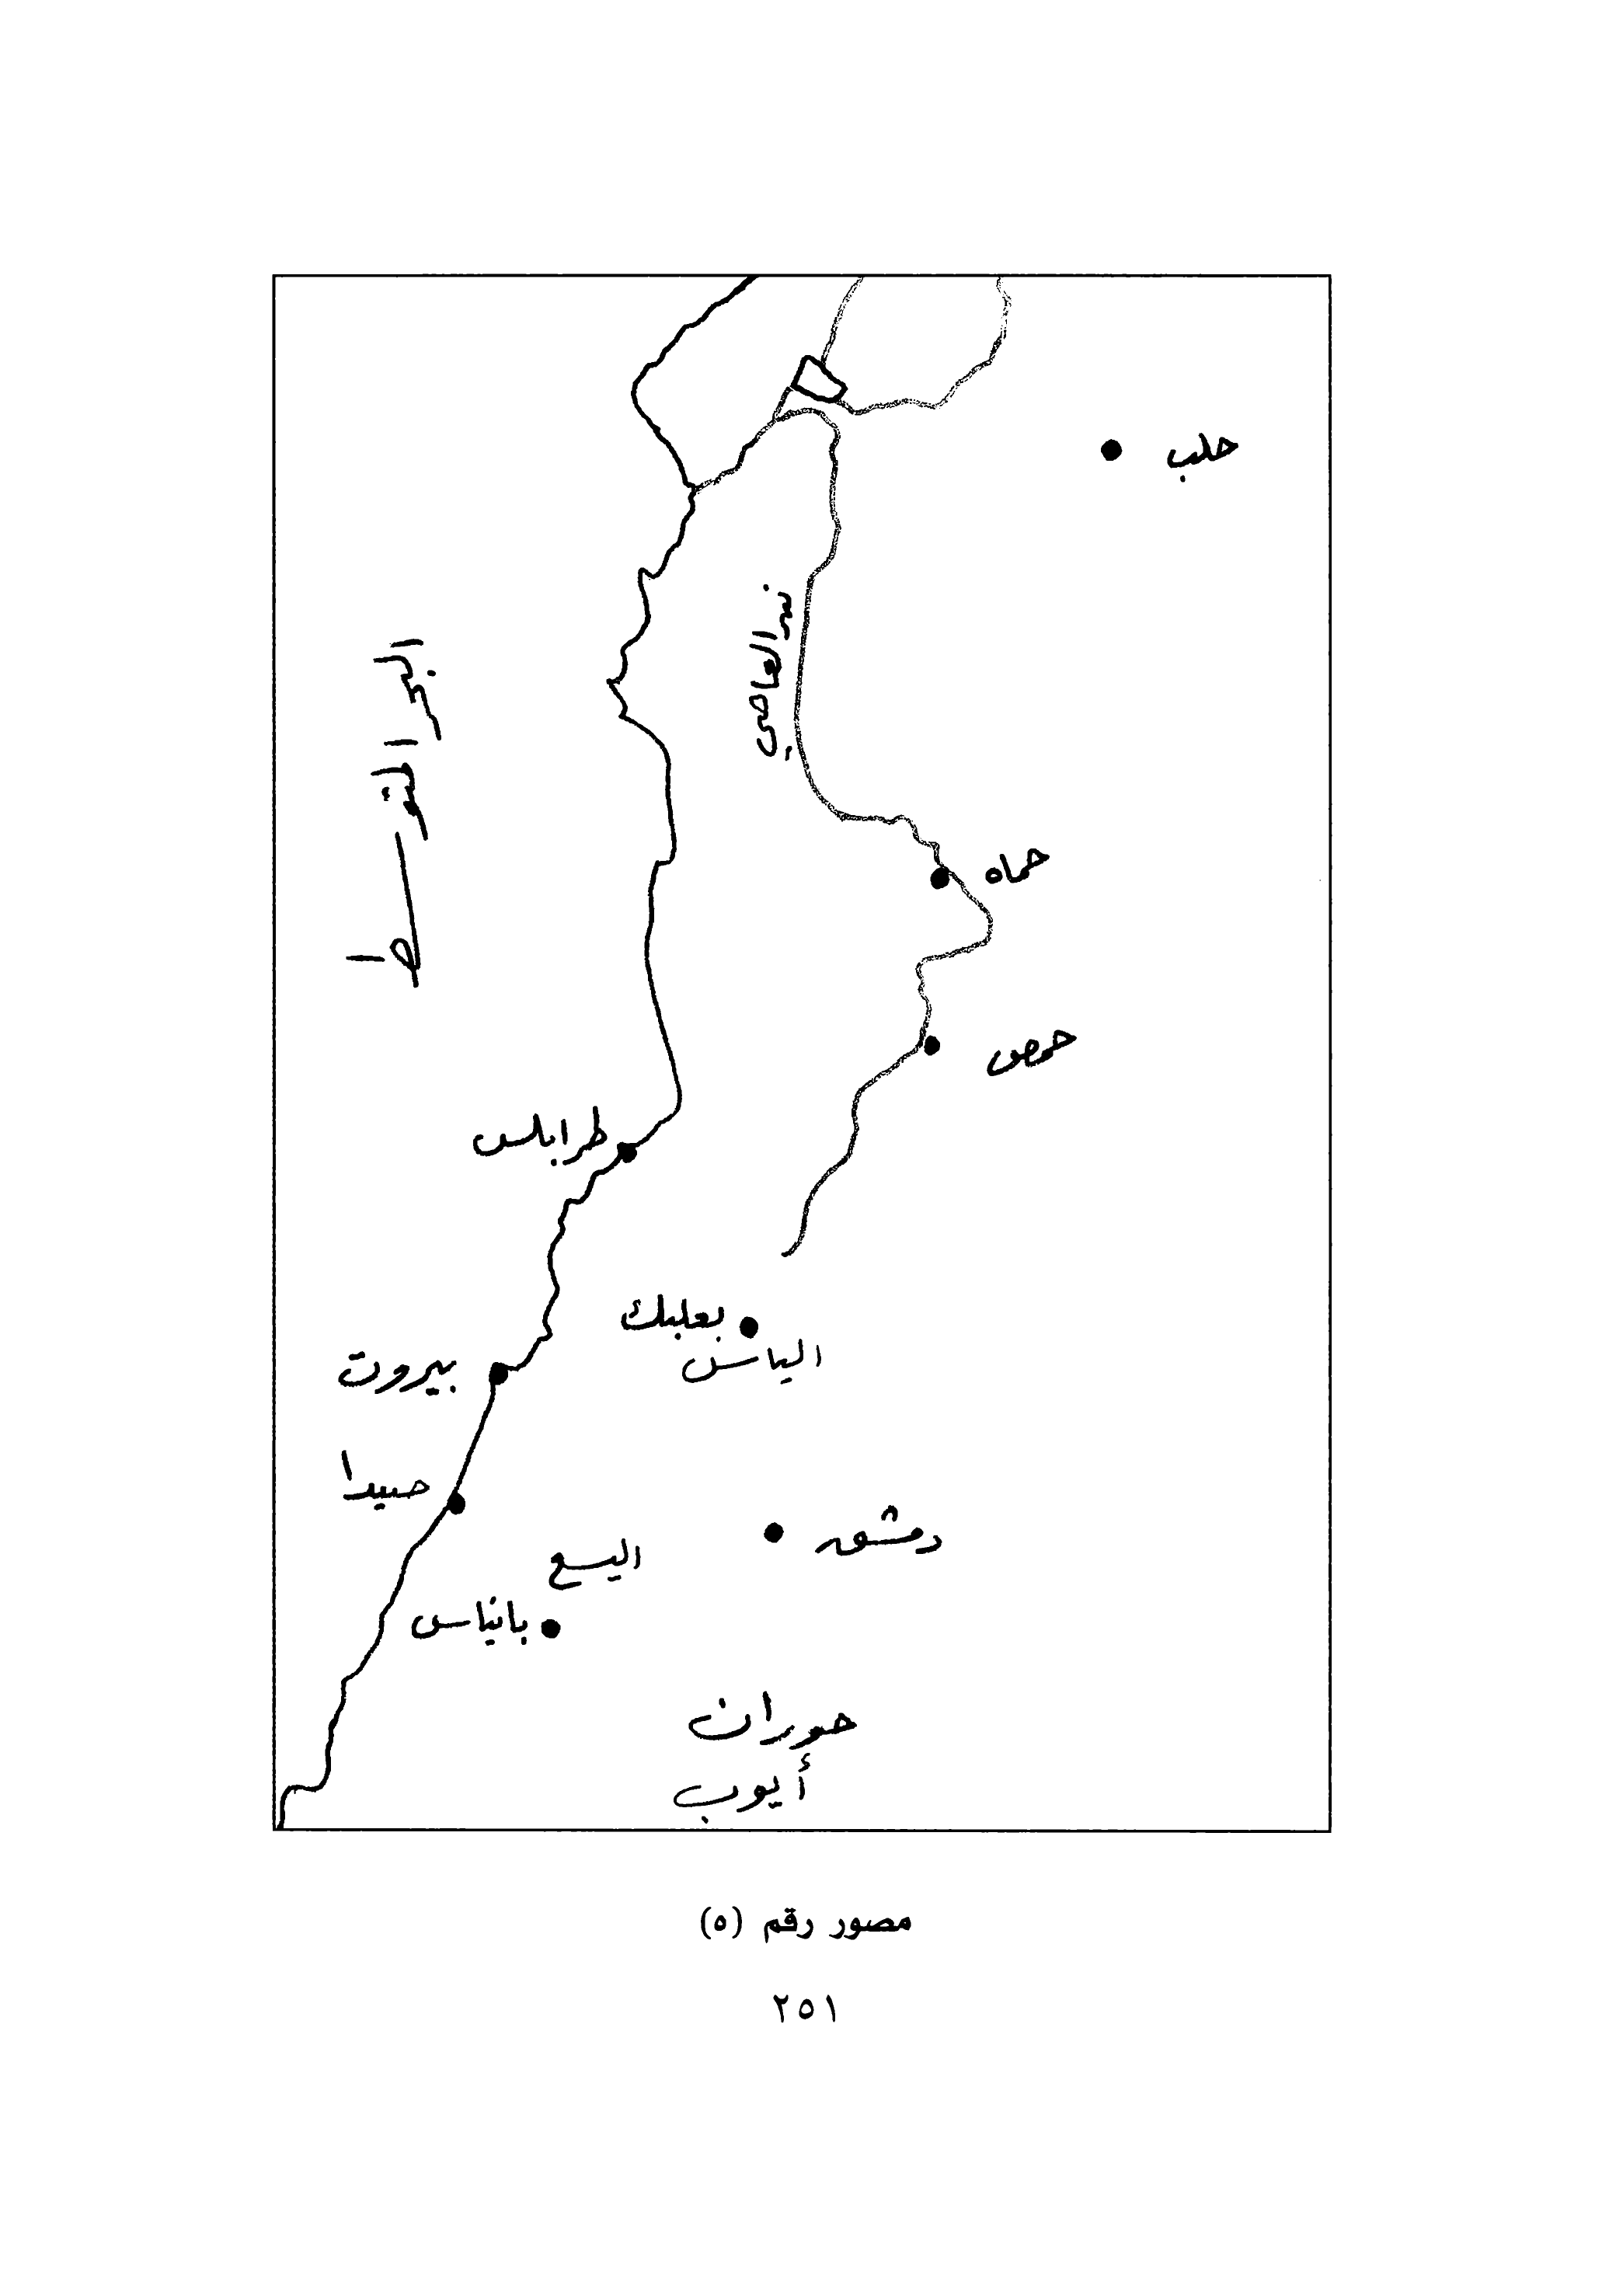 حلب
نهر العاصي
البحر المتوسط
حماه
حمص
طرابلس
بعلبك
الياس
بيروت
صيدا
دمشق
اليسع
بانياس
حوران
أيوب
مصور رقم (٥)
٢٥١